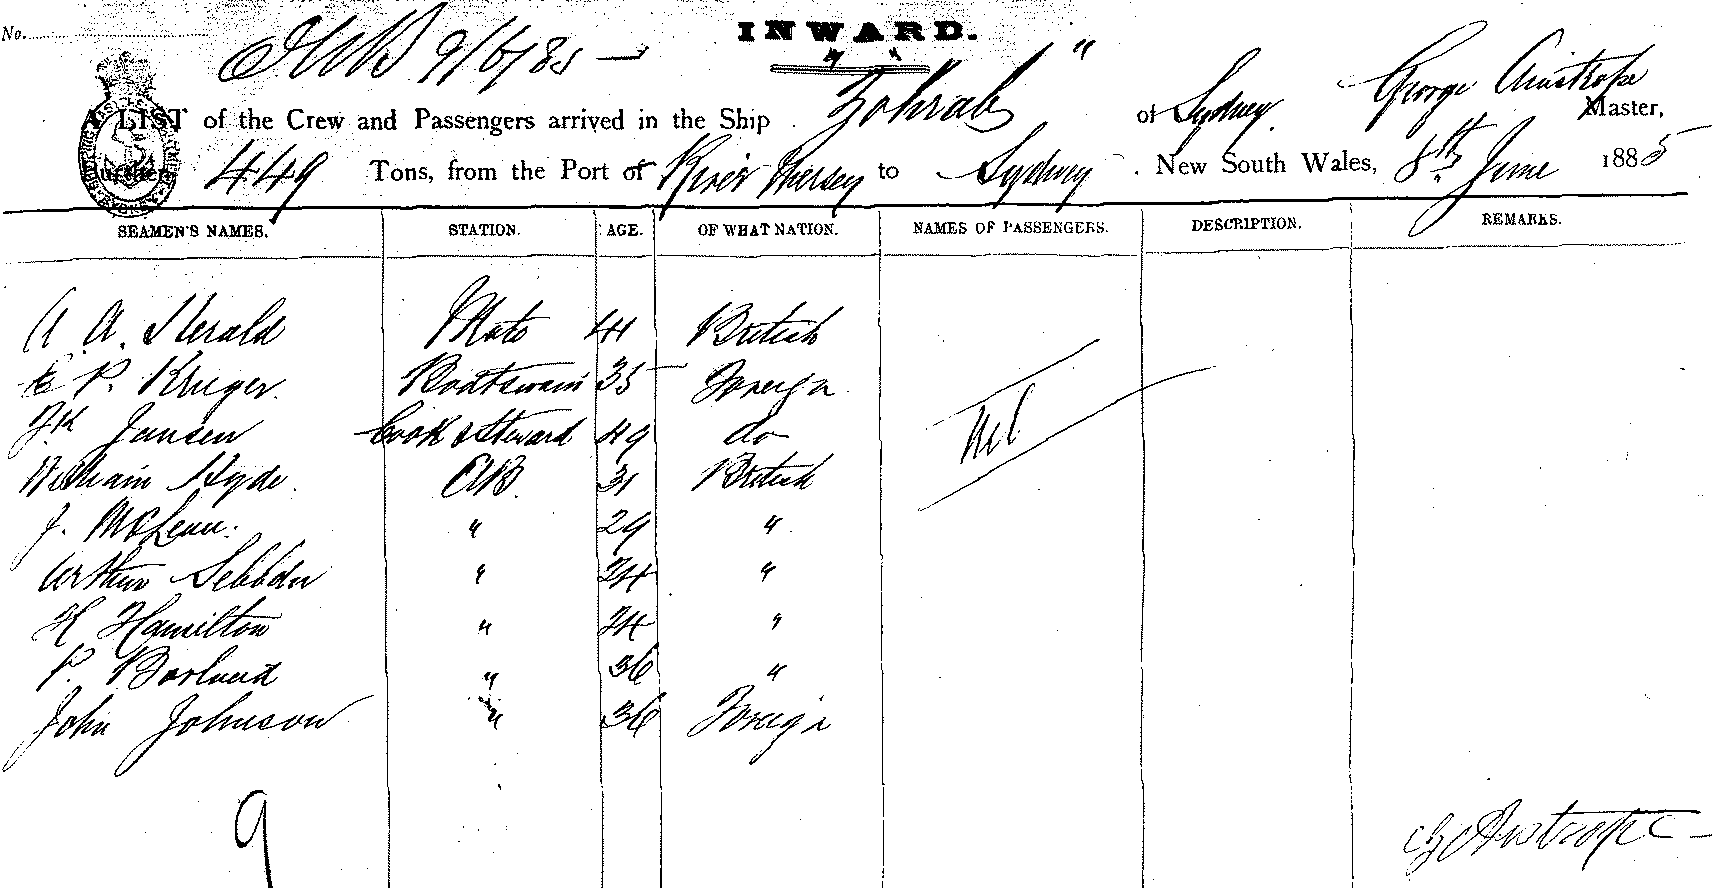 No.
INWARD.
9/6/85
A LIST of the Crew and Passengers arrived in the Ship "Zohrab" of Sydney George Ainstrope Master,
Burthen 449 Tons, from the Port of River Mersey to Sydney. New South Wales, 8th June 1885
SEAMEN'S NAMES. STATION. AGE. OF WHAT NATION. NAMES OF PASSENGERS. DESCRIPTION. REMARKS.
A. Herald Mate 41 British
P. Kruger. Boatswain 35 Foreign
Jansen Cook & Steward 49 do
William Hyde. AB. 31 British
J. McLean. " 29 "
Arthur " 24 "
H Hamilton " 24 "
P. " 36 "
John Johnson " 36 Foreign
Nil
9